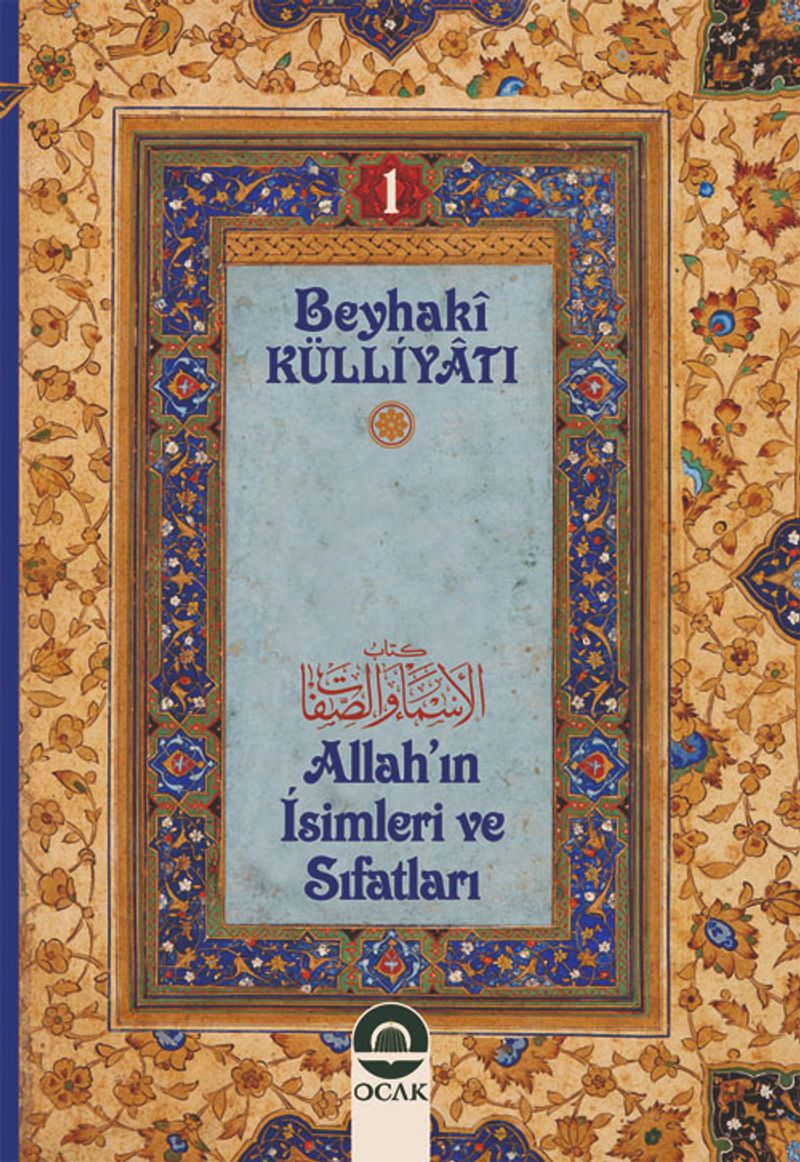 1
Beyhakî
KÜLLİYÂTI
كتاب
الأسماء والصفات
Allah'ın
İsimleri ve
Sıfatları
OCAK